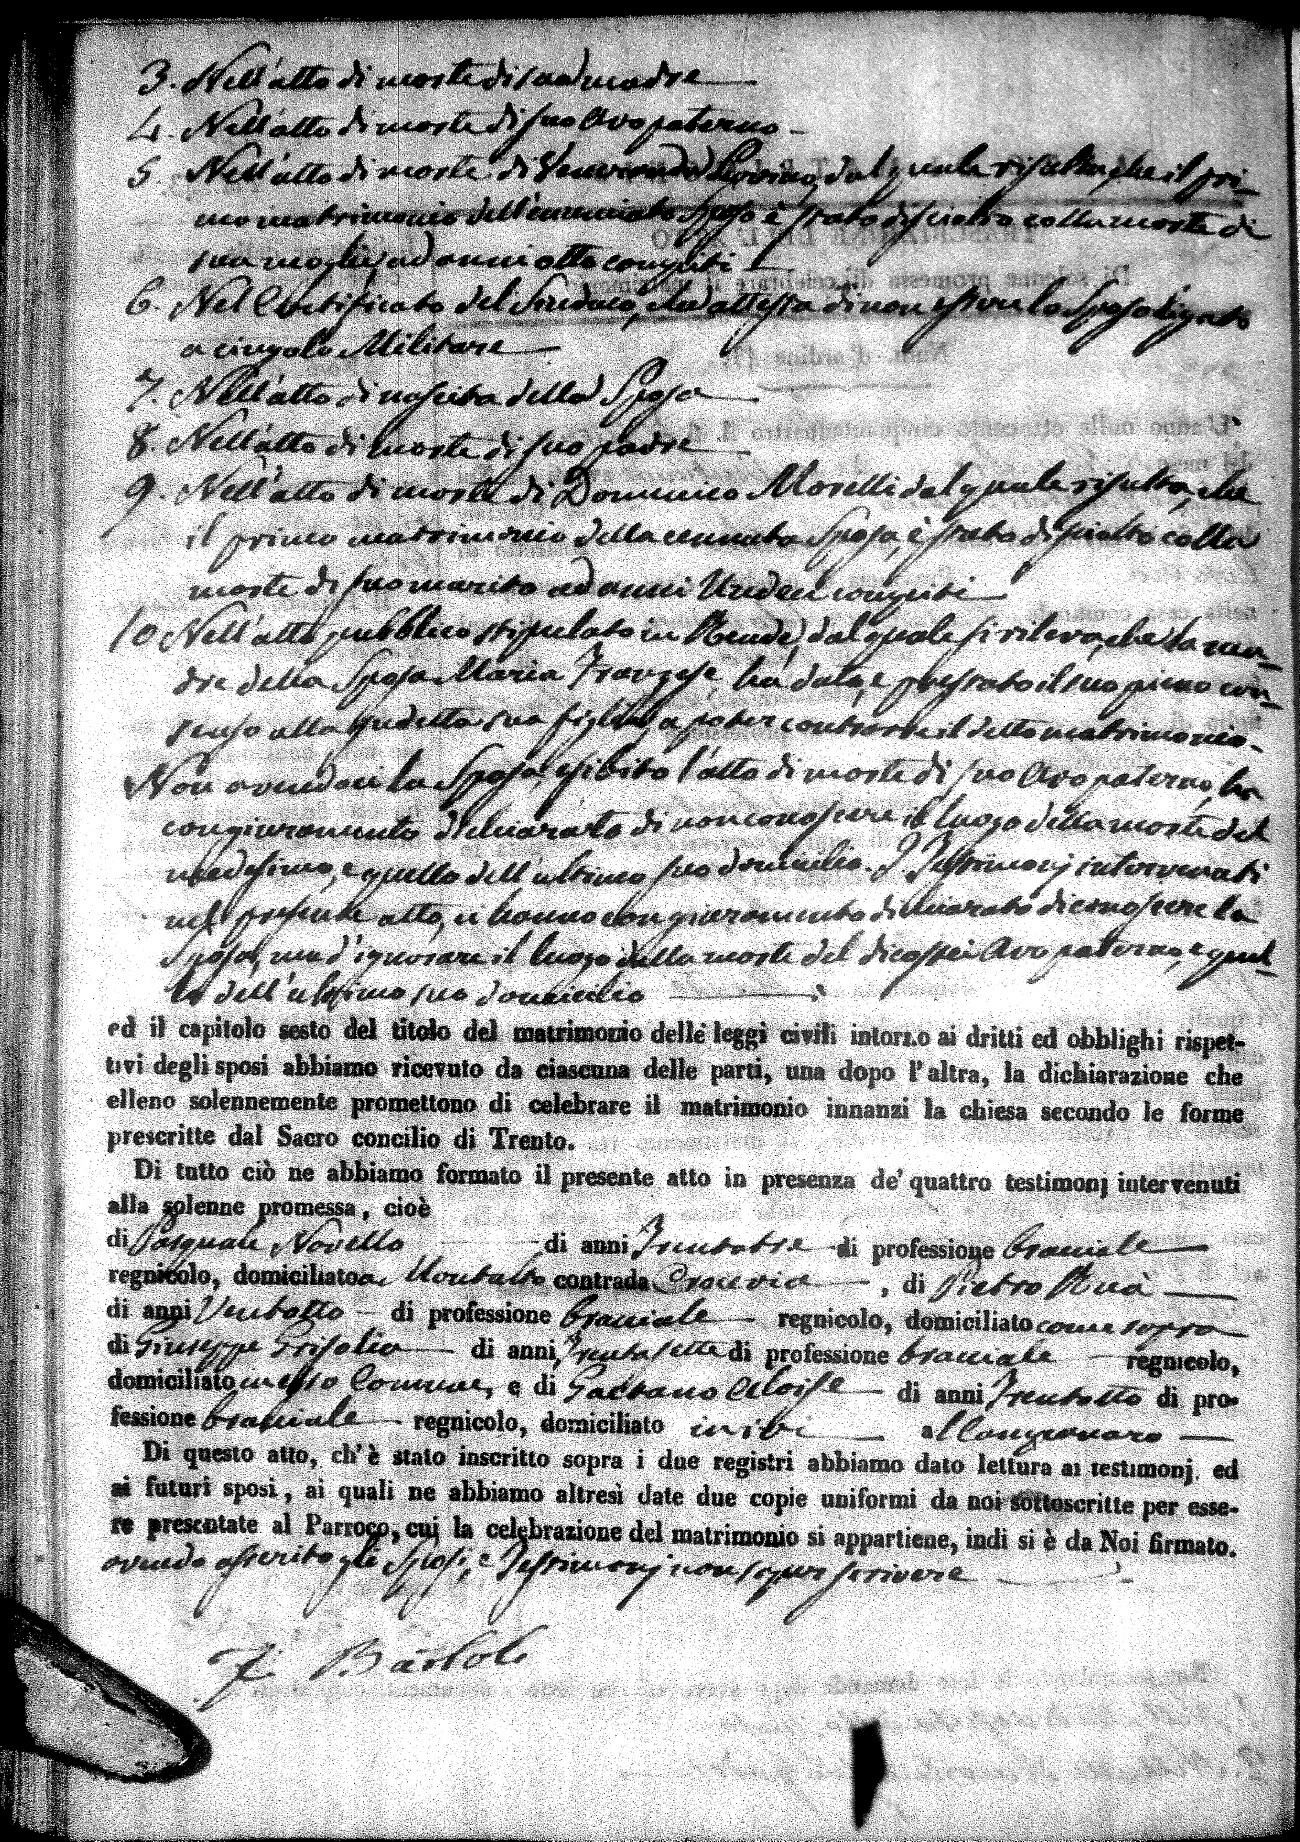 3. Nell'atto di morte di sua madre
4. Nell'atto di morte di suo Avo paterno
5. Nell'atto di morte di dal quale risulta, che il pri-
mo matrimonio dell'enunciato Sposo è stato disciolto colla morte di
sua moglie, ad anni otto compiti
6. Nel Certificato del Sindaco, che attesta di non essere lo Sposo ligato
a cingolo Militare
7. Nell'atto di nascita della Sposa
8. Nell'atto di morte di suo padre
9. Nell'atto di morte di Domenico Morelli dal quale risulta, che
il primo matrimonio della cennata Sposa, è stato disciolto colla
morte di suo marito ad anni Undeci compiti
10. Nell'atto pubblico stipulato in Rende, dal quale si rileva, che la ma-
dre della Sposa Maria Franzese, ha dato, e prestato il suo pieno con-
senso alla sua figlia, a poter contrarre il detto matrimonio.
Non avendoci la Sposa, esibito l'atto di morte di suo Avo paterno, ha
con giuramento dichiarato di non conoscere il luogo della morte del
medesimo, e quello dell'ultimo suo domicilio. I Testimonj intervenuti
nel presente atto, ci hanno con giuramento dichiarato di conoscere la
Sposa, ma d'ignorare il luogo della morte del di costei Avo paterno, e quel-
lo dell'ultimo suo domicilio
ed il capitolo sesto del titolo del matrimonio delle leggi civili intorno ai dritti ed obblighi rispet-
tivi degli sposi abbiamo ricevuto da ciascuna delle parti, una dopo l'altra, la dichiarazione che
elleno solennemente promettono di celebrare il matrimonio innanzi la chiesa secondo le forme
prescritte dal Sacro concilio di Trento.
Di tutto ciò ne abbiamo formato il presente atto in presenza de' quattro testimonj intervenuti
alla solenne promessa, cioè
di Pasquale Novello di anni Trentatre di professione bracciale
regnicolo, domiciliato a Montalto contrada , di Pietro Ruà
di anni Ventotto di professione bracciale regnicolo, domiciliato come sopra
di Giuseppe Grisolia di anni Trentasette di professione bracciale regnicolo,
domiciliato in esso Comune, e di Gaetano Aloise di anni Trentotto di pro-
fessione bracciale regnicolo, domiciliato in ivi
Di questo atto, ch'è stato inscritto sopra i due registri abbiamo dato lettura ai testimonj, ed
ai futuri sposi, ai quali ne abbiamo altresì date due copie uniformi da noi sottoscritte per esse-
re presentate al Parroco, cui la celebrazione del matrimonio si appartiene, indi si è da Noi firmato.
avendo asserito gli Sposi, e Testimonj non saper scrivere